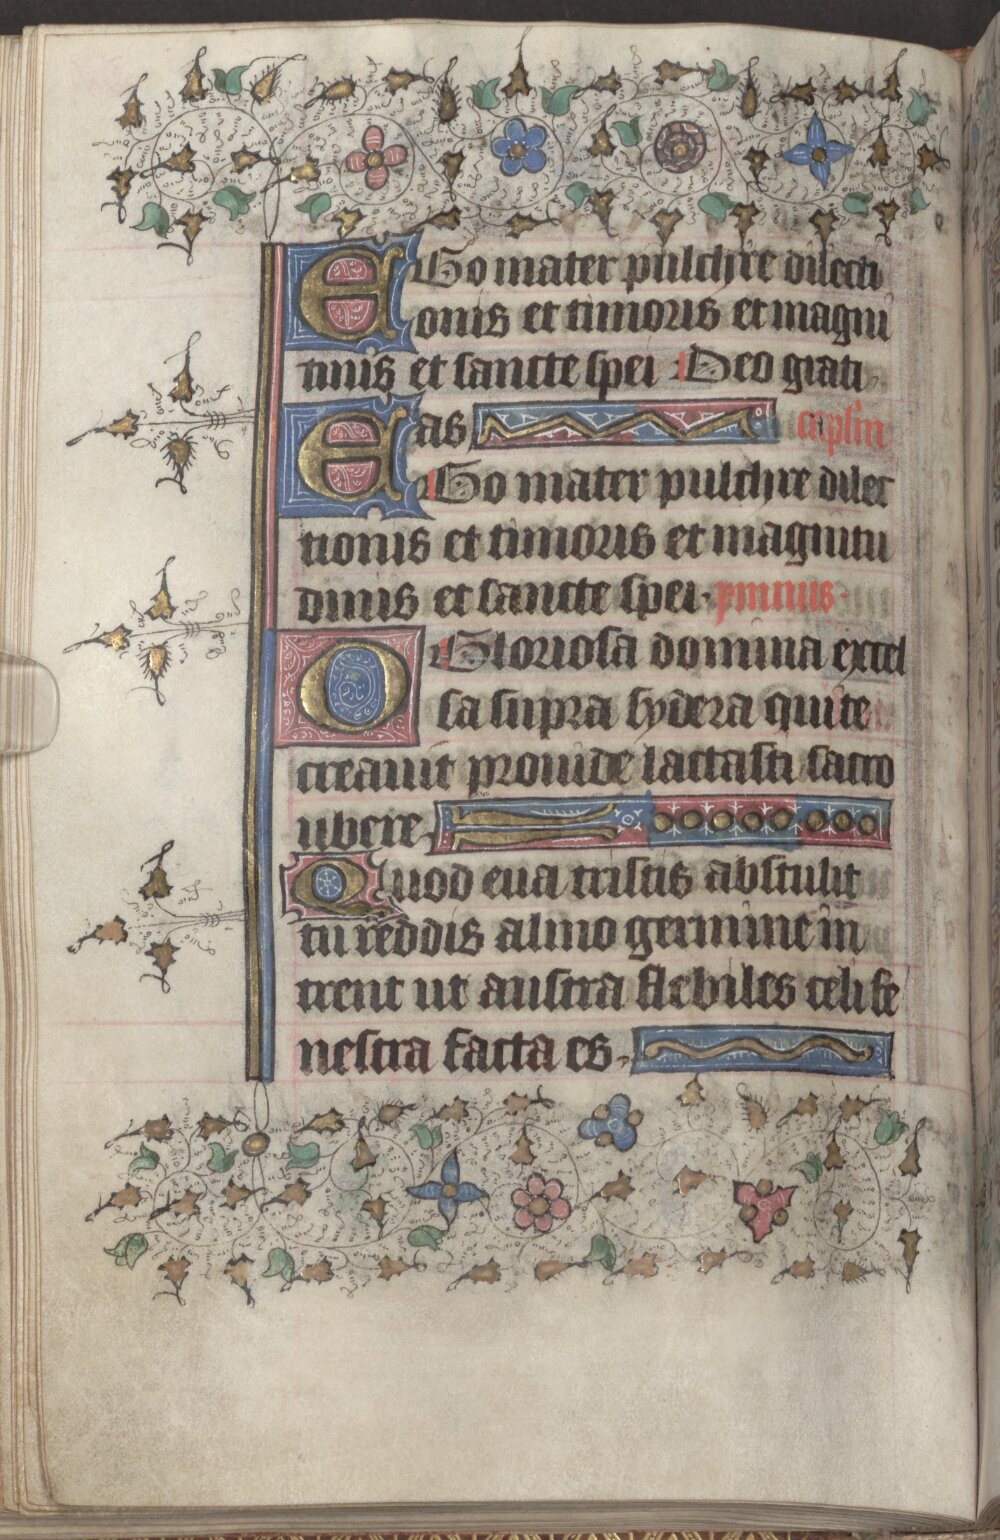 EGo mater pulchre dilecti
onis et timoris et magni
tinis et sancte spei Deo grati
as capl'm
EGo mater pulchre dilec
tionis et timoris et magnitu
dinis et sancte spei. ympnus.
O Gloriosa domina excel
sa supra sydera qui te
creauit prouide lactasti sacro
ubere.
Quod eua tristis abstulit
tu reddis almo germine in
trent ut austra flebiles celi fe
nestra facta es.